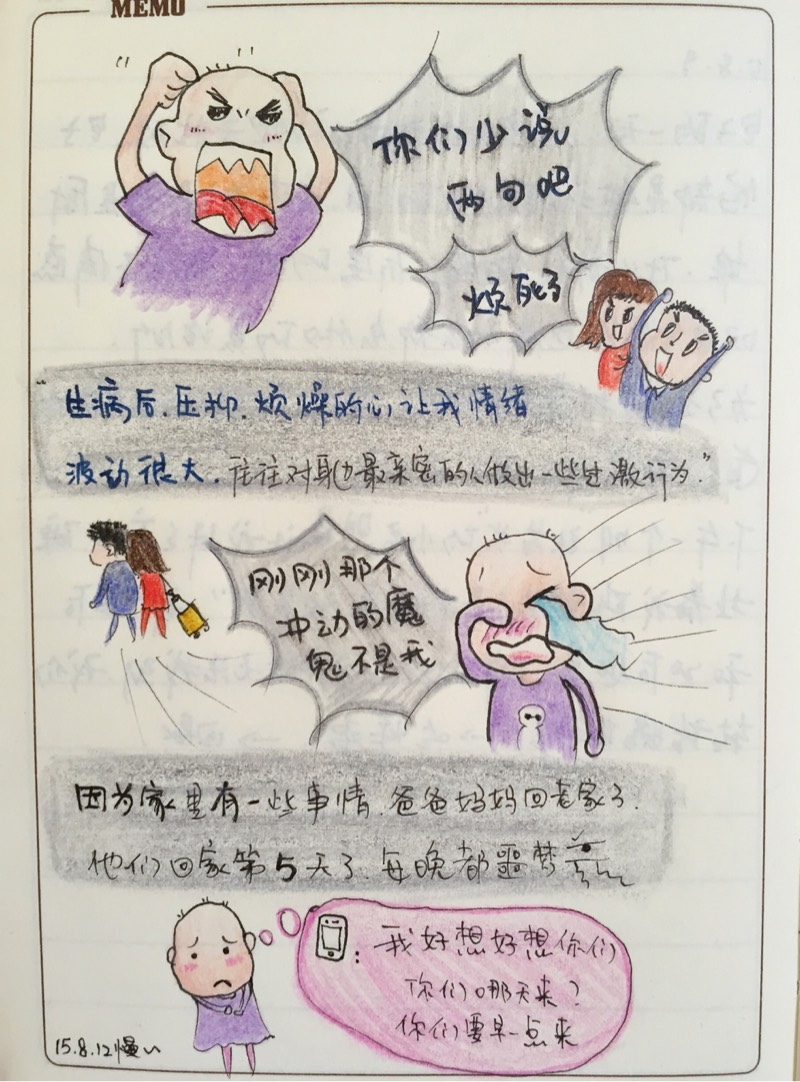 MEMO
你们少说
两句吧
烦死了
"生病后.压抑.烦燥的心让我情绪
波动很大.往往对最亲密的人做出一些过激行为."
刚刚那个
冲动的魔
鬼不是我
因为家里有一些事情.爸爸妈妈回老家了.
他们回家第5天了.每晚都噩梦
:我好想好想你们
你们哪天来?
你们要早一点来
15.8.12慢